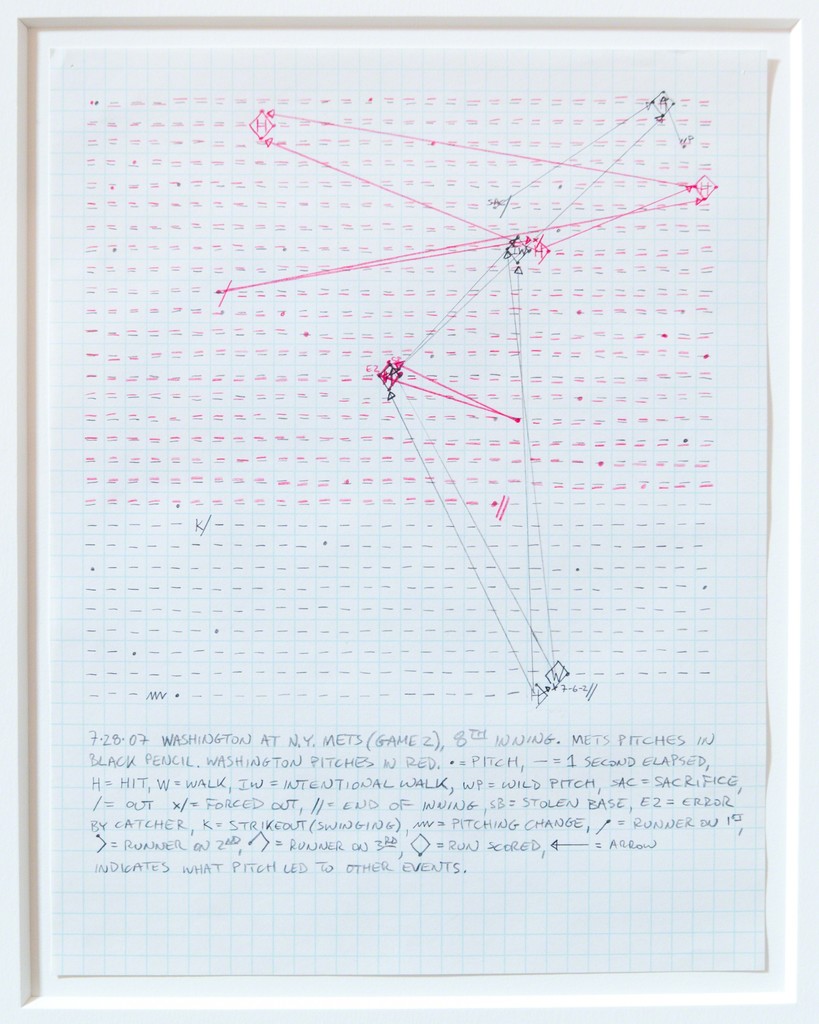 H
H
WP
H
SAC/
IW
x/
H
E2
SB
//
K/
W
7-6-2//
7·28·07 WASHINGTON AT N.Y. METS (GAME 2), 8TH INNING. METS PITCHES IN
BLACK PENCIL. WASHINGTON PITCHES IN RED. • = PITCH, — = 1 SECOND ELAPSED,
H = HIT, W = WALK, IW = INTENTIONAL WALK, WP = WILD PITCH, SAC = SACRIFICE,
/ = OUT X/ = FORCED OUT, // = END OF INNING, SB = STOLEN BASE, E2 = ERROR
BY CATCHER, K = STRIKEOUT (SWINGING), = PITCHING CHANGE, = RUNNER ON 1ST,
= RUNNER ON 2ND, = RUNNER ON 3RD, = RUN SCORED, ← = ARROW
INDICATES WHAT PITCH LED TO OTHER EVENTS.